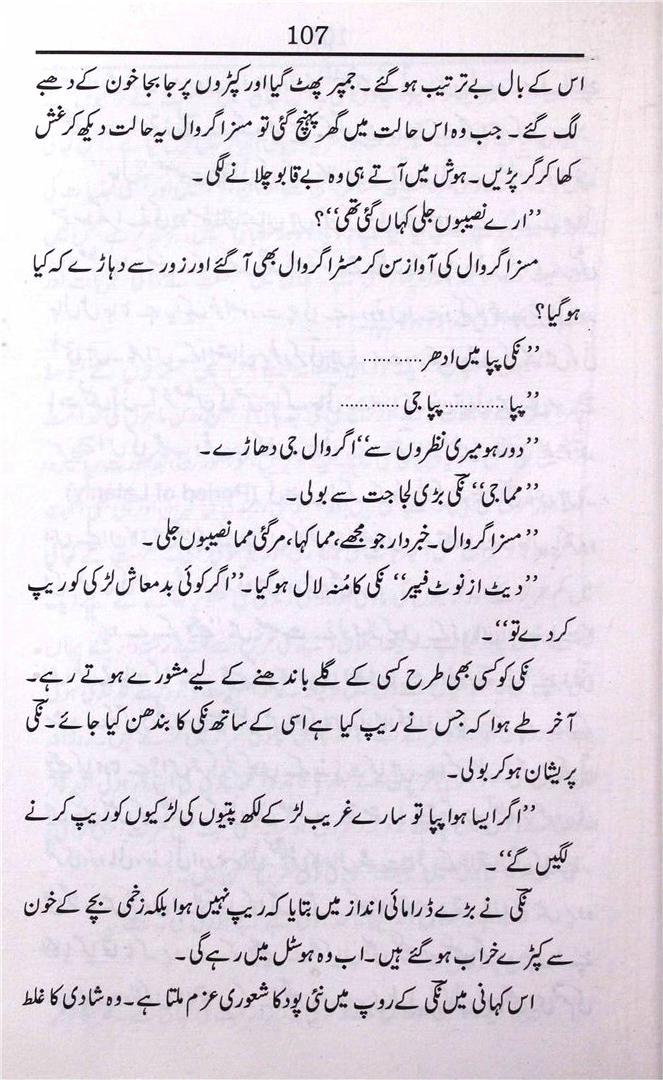 107
اس کے بال بے ترتیب ہو گئے۔ جمپر پھٹ گیا اور کپڑوں پر جا بجا خون کے دھبے
لگ گئے۔ جب وہ اس حالت میں گھر پہنچ گئی تو مسز اگروال یہ حالت دیکھ کر غش
کھا کر گر پڑیں۔ ہوش میں آتے ہی وہ بے قابو چلانے لگی۔
”ارے نصیبوں جلی کہاں گئی تھی“؟
مسز اگروال کی آواز سن کر مسٹر اگروال بھی آ گئے اور زور سے دہاڑے کہ کیا
ہو گیا؟
”نکی پپا میں ادھر............
”پپا............ پپا جی............
”دور ہو میری نظروں سے“ اگروال جی دھاڑے۔
”مما جی“ نکّی بڑی لجاجت سے بولی۔
”مسز اگروال۔ خبردار جو مجھے، مما کہا، مر گئی مما نصیبوں جلی۔
”دیٹ از نوٹ فیر“ نکی کا مُنہ لال ہو گیا۔ ”اگر کوئی بدمعاش لڑکی کو ریپ
کر دے تو“۔
نکی کو کسی بھی طرح کسی کے گلے باندھنے کے لیے مشورے ہوتے رہے۔
آخر طے ہوا کہ جس نے ریپ کیا ہے اسی کے ساتھ نکی کا بندھن کیا جائے۔ نکّی
پریشان ہو کر بولی۔
”اگر ایسا ہوا پپا تو سارے غریب لڑکے لکھ پتیوں کی لڑکیوں کو ریپ کرنے
لگیں گے“۔
نکّی نے بڑے ڈرامائی انداز میں بتایا کہ ریپ نہیں ہوا بلکہ زخمی بچے کے خون
سے کپڑے خراب ہو گئے ہیں۔ اب وہ ہوسٹل میں رہے گی۔
اس کہانی میں نکّی کے روپ میں نئی پود کا شعوری عزم ملتا ہے۔ وہ شادی کا غلط